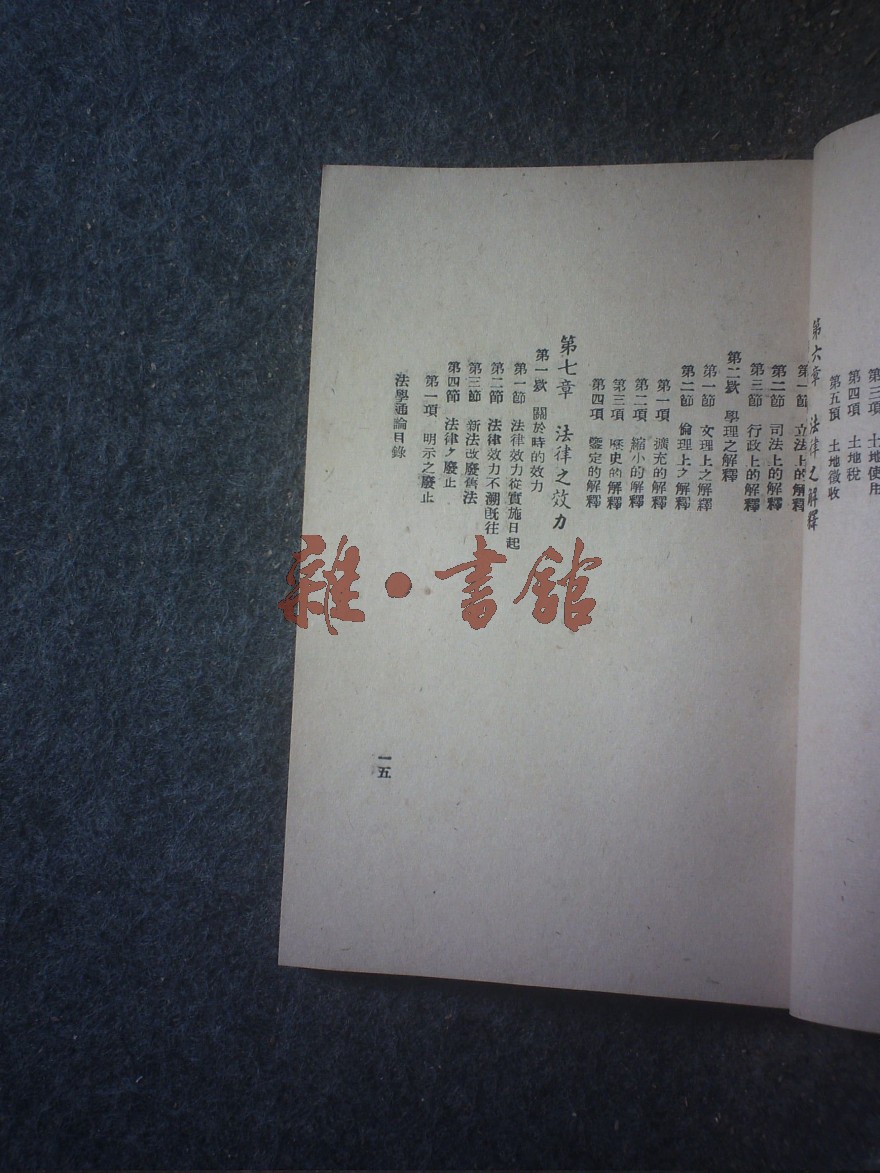 第三項 土地使用
第四項 土地稅
第五預 土地徵收
第六章 法律之解釋
第一節 立法上的解釋
第二節 司法上的解釋
第三節 行政上的解釋
第二欵 學理之解釋
第一節 文理上之解釋
第二節 倫理上之解釋
第一項 擴充的解釋
第二項 縮小的解釋
第三項 歷史的解釋
第四項 鑒定的解釋
第七章 法律之效力
第一欵 關於時的效力
第一節 法律效力從實施日起
第二節 法律效力不溯旣往
第三節 新法改廢舊法
第四節 法律之廢止
第一項 明示之廢止
法學通論目錄
一五
雜·書館